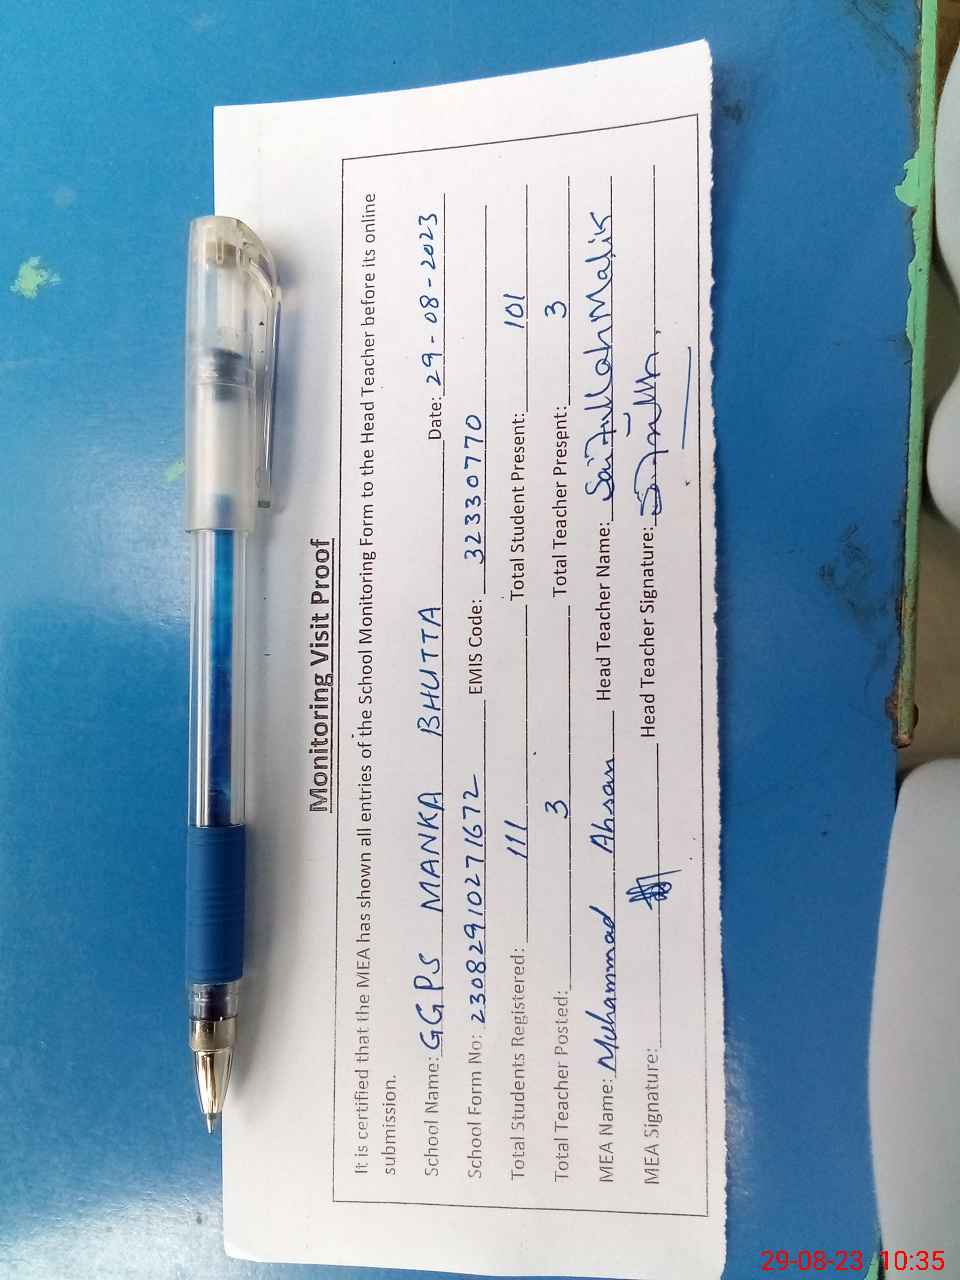 Monitoring Visit Proof
It is certified that the MEA has shown all entries of the School Monitoring Form to the Head Teacher before its online
submission.
School Name: GGPS MANKA BHUTTA Date: 29-08-2023
School Form No: 23082910271672 EMIS Code: 32330770
Total Students Registered: 111 Total Student Present: 101
Total Teacher Posted: 3 Total Teacher Present: 3
MEA Name: Muhammad Ahsan Head Teacher Name: Saifullah Malik
MEA Signature: Head Teacher Signature:
29-08-23 10:35